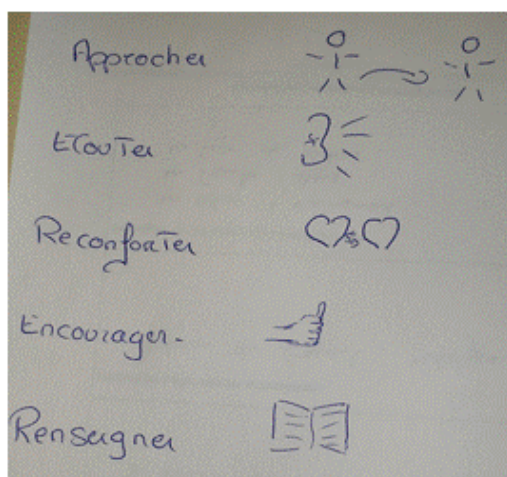 Approcher
Ecouter
Reconforter
Encourager.
Renseigner